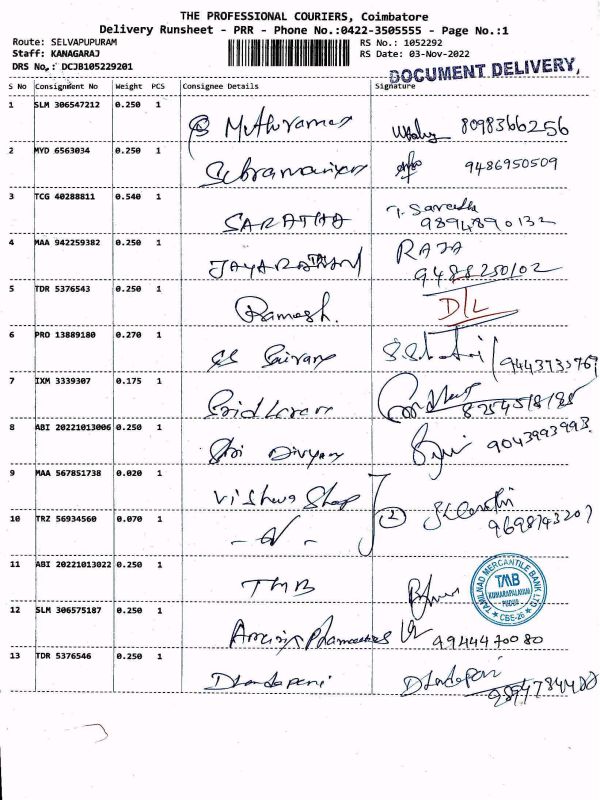 THE PROFESSIONAL COURIERS, Coimbatore
Delivery Runsheet - PRR - Phone No.:0422-3505555 - Page No.:1
Route: SELVAPUPURAM
Staff: KANAGARAJ
DRS No.: DCJB105229201
RS No.: 1052292
RS Date: 03-Nov-2022
DOCUMENT DELIVERY,
S No Consignment No Weight PCS Consignee Details Signature
1 SLM 306547212 0.250 1 8098366256
2 MYD 6563034 0.250 1 9486950509
3 TCG 40288811 0.540 1 SARATHA T. Saratha
9894890132
4 MAA 942259382 0.250 1 RAJA
9488250102
5 TDR 5376543 0.250 1 Ramesh. D/L
6 PRO 13889180 0.270 1
7 IXM 3339307 0.175 1
8 ABI 20221013006 0.250 1 Sri Divyam 9043993993
9 MAA 567851738 0.020 1 Vishwa Shop
10 TRZ 56934560 0.070 1 2 9698743207
11 ABI 20221013022 0.250 1 TMB
TAMILNAD MERCANTILE BANK LTD
TMB
KUMARAPALAYAM
CBE-26
12 SLM 306575187 0.250 1 9944470080
13 TDR 5376546 0.250 1 Dhandapani Dhandapani